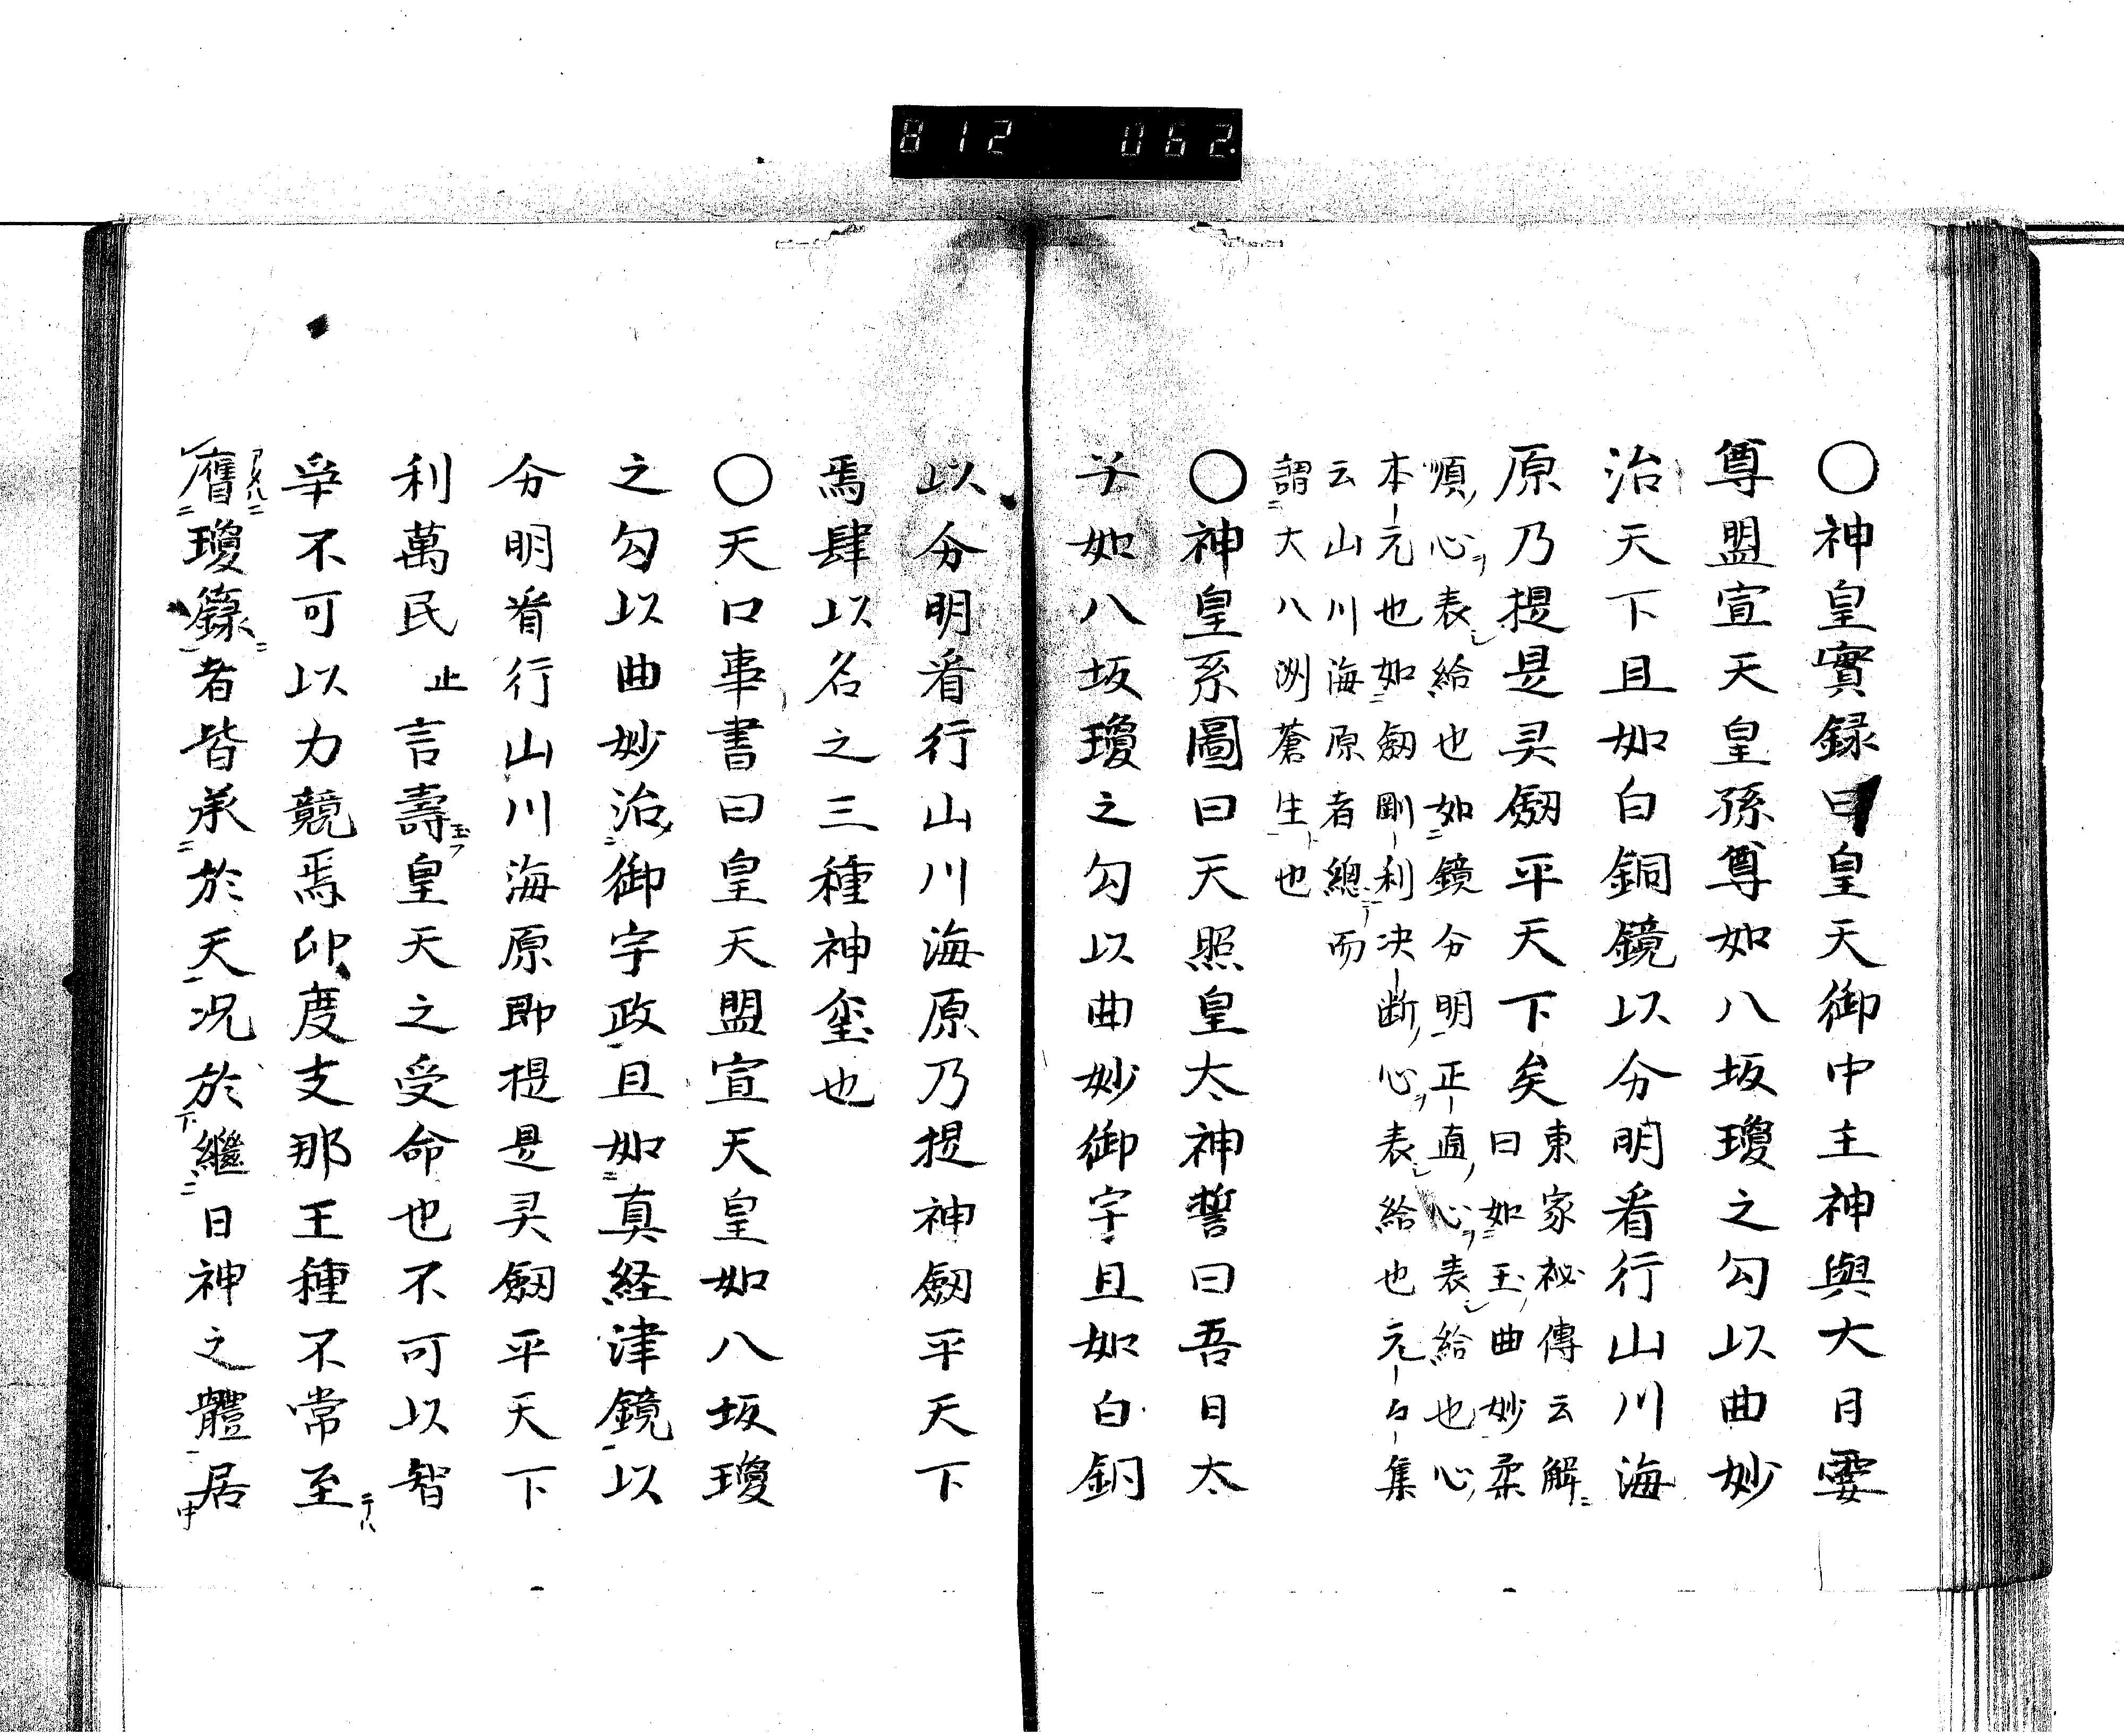 812 062.
○神皇實録曰皇天御中主神與大日孁
尊盟宣天皇孫尊如八坂瓊之勾以曲妙
治天下且如白銅鏡以分明看行山川海
原乃提是灵劔平天下矣
東家祕傳云解
曰如玉曲妙柔
順心表給也如鏡分明正直心表給也心
本元也如劔剛利決断心表給也元々集
云山川海原者總而
謂大八洲蒼生也
○神皇系圖曰天照皇太神誓曰吾日太
子如八坂瓊之勾以曲妙御宇且如白銅
以分明看行山川海原乃提神劔平天下
焉肆以名之三種神玺也
○天口事書曰皇天盟宣天皇如八坂瓊
之勾以曲妙治御宇政且如真経津鏡以
分明看行山川海原即提是灵劔平天下
利萬民止言壽皇天之受命也不可以智
争不可以力競焉印度支那王種不常至
膺瓊籙者皆承於天况於繼日神之體居